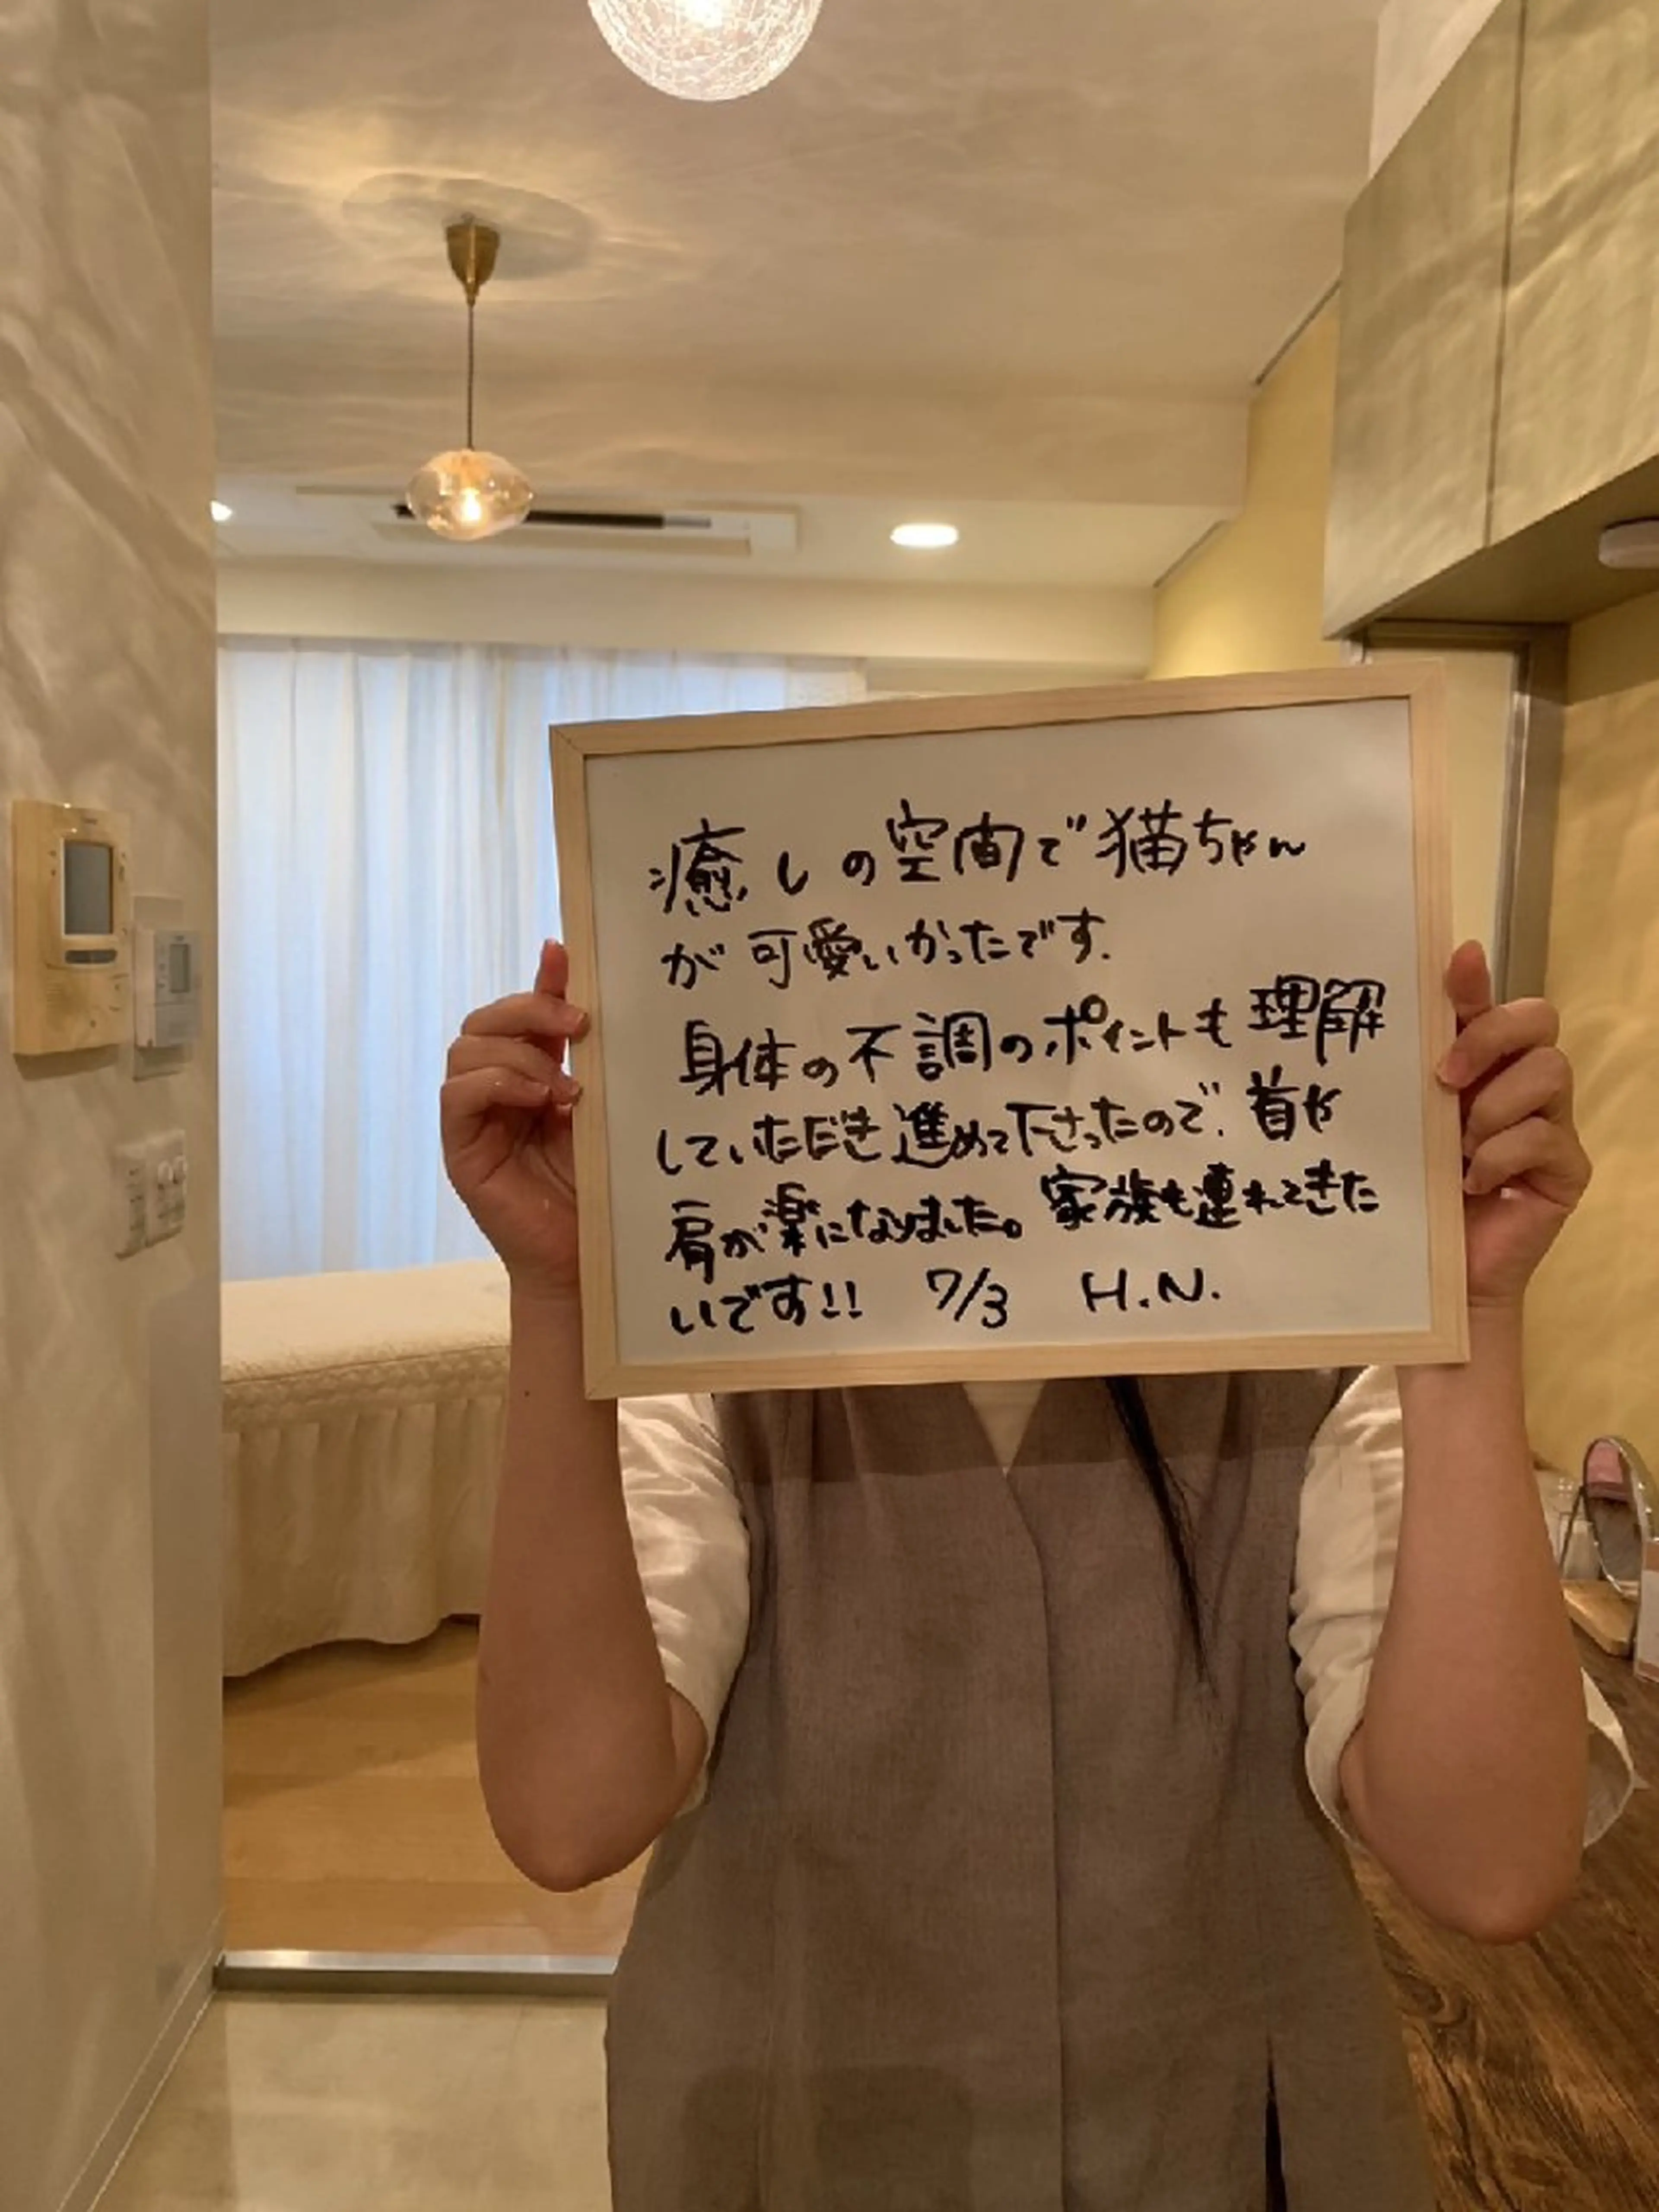 癒しの空間で猫ちゃん
が可愛いかったです.
身体の不調のポイントも理解
していただき進めて下さったので、首や
肩が楽になりました。家族も連れてきた
いです!! 7/3 H.N.